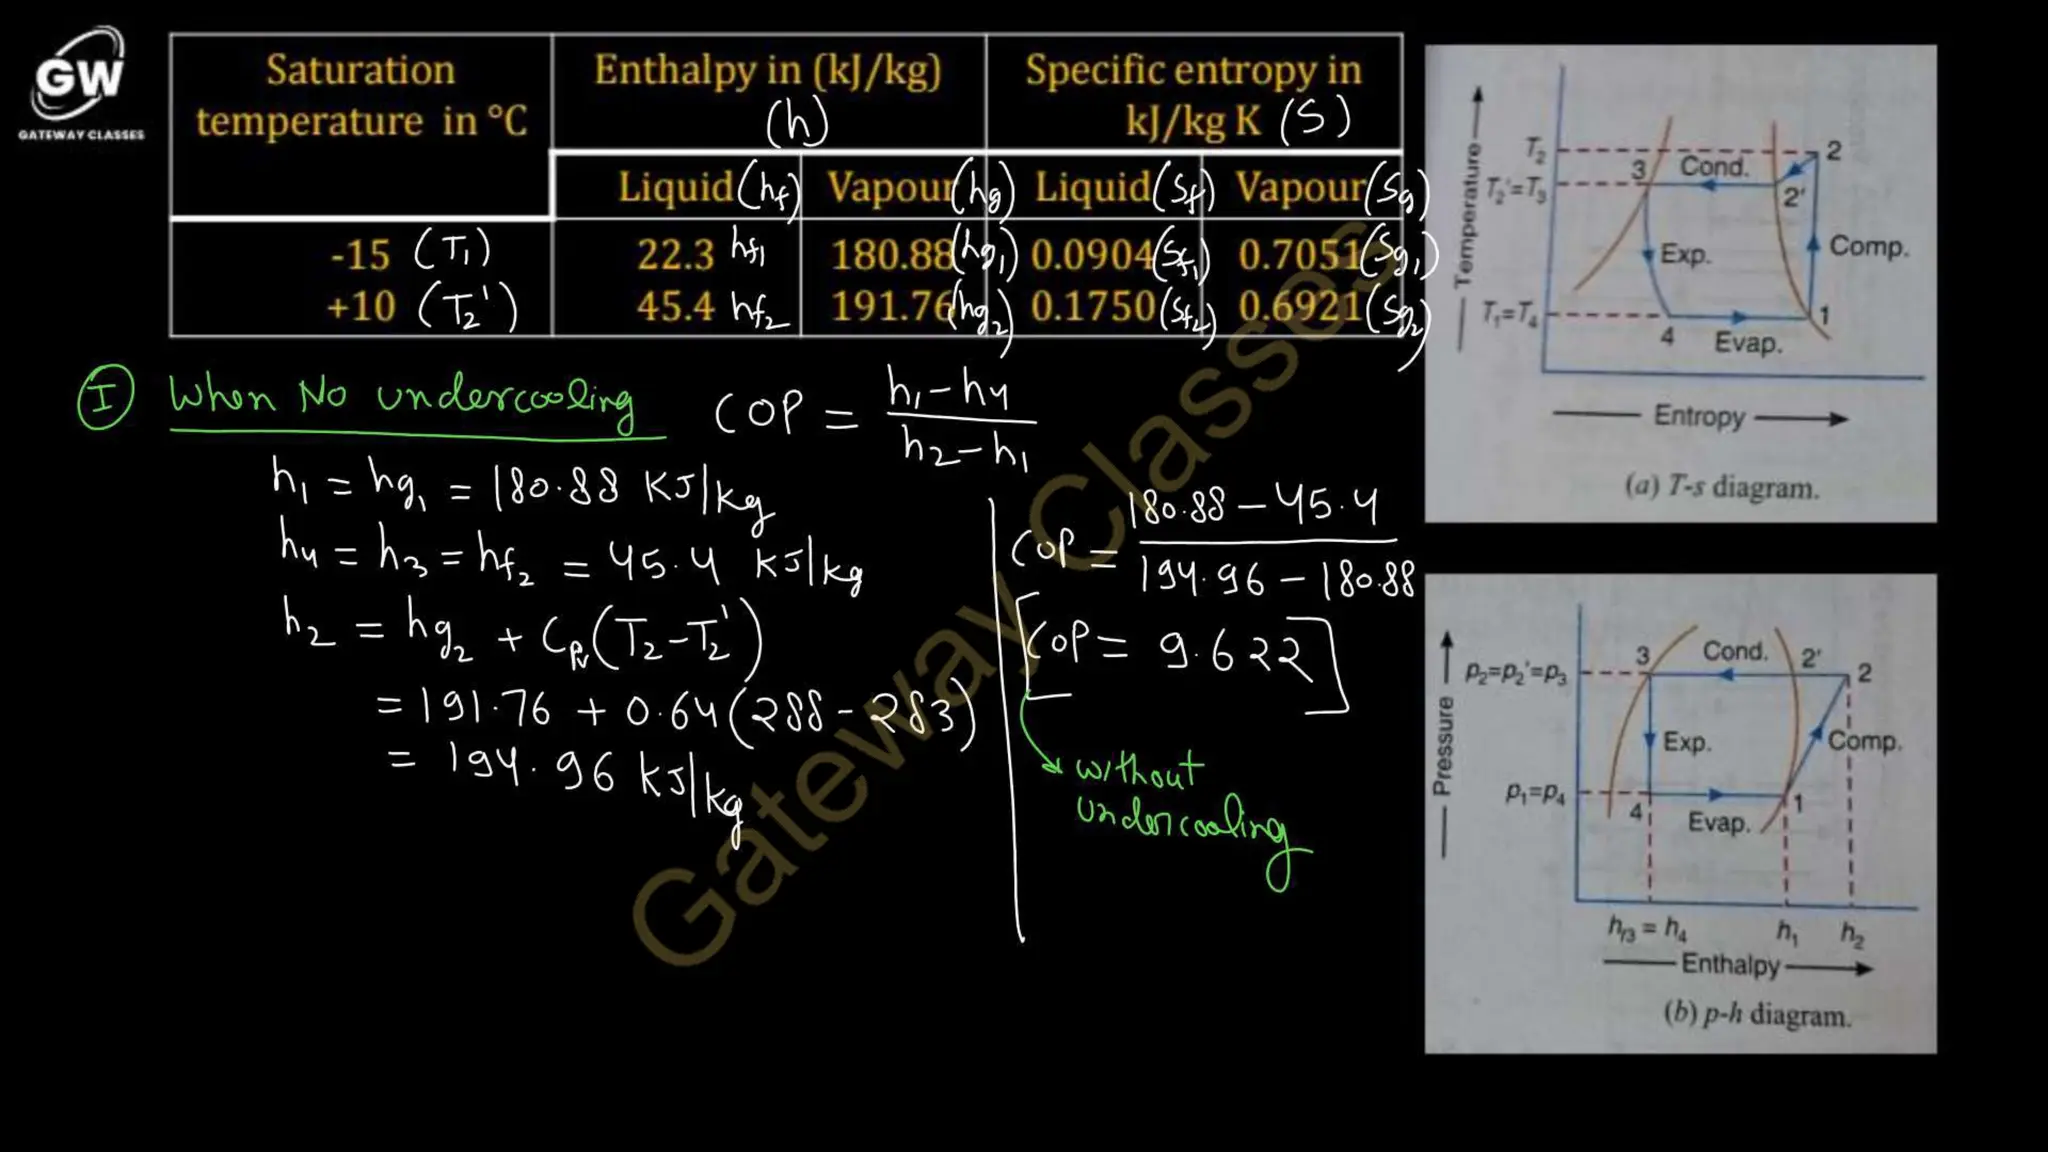 GW
GATEWAY CLASSES
Saturation temperature in °C
Enthalpy in (kJ/kg) (h)
Specific entropy in kJ/kg K (S)
Liquid (hf) Vapour (hg) Liquid (Sf) Vapour (Sg)
-15 (T1) 22.3 hf1 180.88 (hg1) 0.0904 (Sf1) 0.7051 (Sg1)
+10 (T2') 45.4 hf2 191.76 (hg2) 0.1750 (Sf2) 0.6921 (Sg2)
I When No undercooling
COP = h1-h4 / h2-h1
h1 = hg1 = 180.88 KJ/kg
h4 = h3 = hf2 = 45.4 KJ/kg
h2 = hg2 + Cpv (T2-T2')
= 191.76 + 0.64 (288 - 283)
= 194.96 KJ/kg
COP = 180.88 - 45.4 / 194.96 - 180.88
[COP = 9.622]
without
undercooling
Gateway Classes
Temperature
T2
T2'=T3
T1=T4
3 Cond. 2
2'
Exp. Comp.
4 Evap. 1
Entropy
(a) T-s diagram.
Pressure
p2=p2'=p3
p1=p4
3 Cond. 2' 2
Exp. Comp.
4 Evap. 1
hf3 = h4 h1 h2
Enthalpy
(b) p-h diagram.